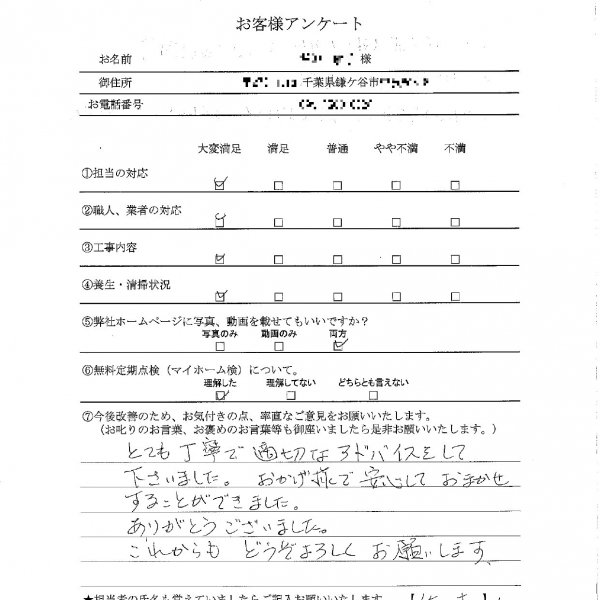 お客様アンケート
お名前 様
御住所 千葉県鎌ケ谷市
お電話番号
大変満足 満足 普通 やや不満 不満
①担当の対応 ☑ □ □ □ □
②職人、業者の対応 ☑ □ □ □ □
③工事内容 ☑ □ □ □ □
④養生・清掃状況 ☑ □ □ □ □
⑤弊社ホームページに写真、動画を載せてもいいですか?
写真のみ 動画のみ 両方
□ □ ☑
⑥無料定期点検（マイホーム検）について。
理解した 理解してない どちらとも言えない
☑ □ □
⑦今後改善のため、お気付きの点、率直なご意見をお願いいたします。
（お叱りのお言葉、お褒めのお言葉等も御座いましたら是非お願いいたします。）
とても丁寧で適切なアドバイスをして
下さいました。おかげ様で安心しておまかせ
することができました。
ありがとうございました。
これからもどうぞよろしくお願いします。
★担当者の氏名も覚えていましたらご記入お願いいたします。